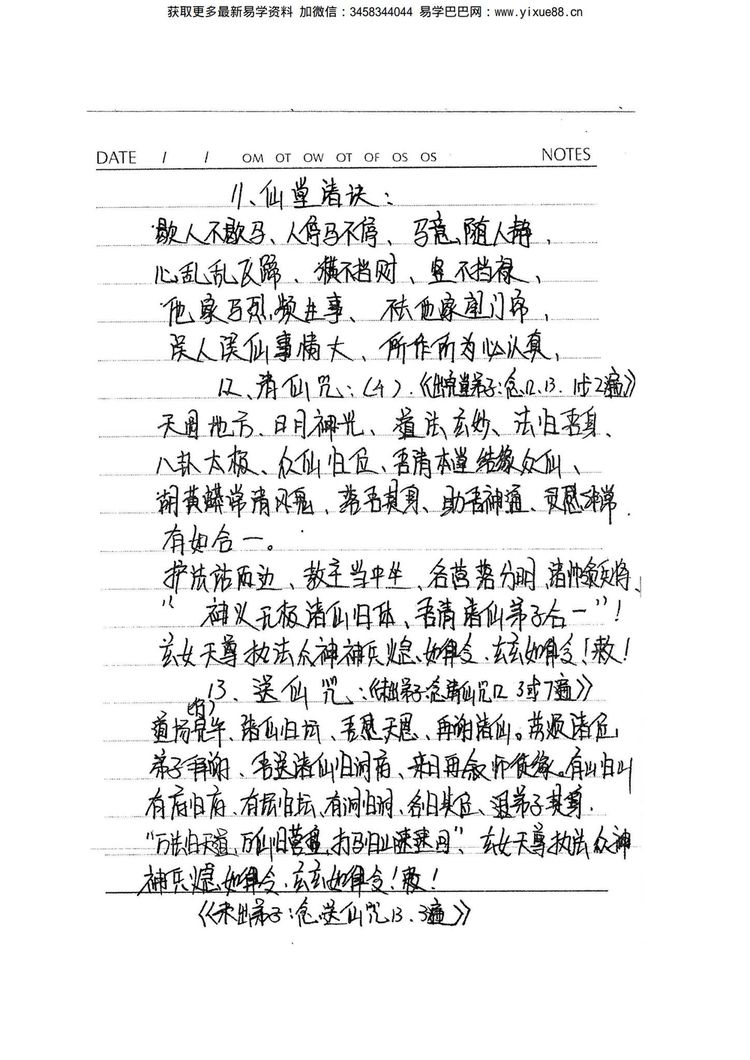 获取更多最新易学资料 加微信：3458344044 易学巴巴网：www.yixue88.cn
DATE / / OM OT OW OT OF OS OS NOTES
11、仙堂诸诀：
歇人不歇马、人停马不停、马意随人静，
心乱乱瓦蹄、横不挡财、竖不挡禄、
他家马烈频生事、 他家门帘，
误人误仙事情大、所作所为必认真，
12、请仙咒：(4)．《弟子：念12、13．1或2遍》
天圆地方、日月神光、道法玄妙、法归吾身、
八卦太极、众仙归位、吾请本堂结缘众仙、
胡黄蟒常清风鬼，落吾其身、助吾神通、灵感非常
有如合一。
护法站两边、教主当中坐，各营落分明，诸帅领兵将、
“神火无极诸仙归体、吾请诸仙弟子合一”！
玄女天尊执法众神神兵火急如律令．玄玄如律令！敕！
13、送仙咒：《未出弟子：念请仙咒12 3或7遍》
道场完毕、诸仙归坛、吾感天恩、再谢诸仙。劳烦诸位
弟子再谢、吾送诸仙归洞府、来日再叙师债缘。有山归山
有府归府．有坛归坛、有洞归洞．各归其位、弟子其身．
“万法归天道，万仙归营盘，打马归山速速回”、玄女天尊执法众神
神兵火急如律令．玄玄如律令！敕！
《未出弟子：念送仙咒13．3遍》